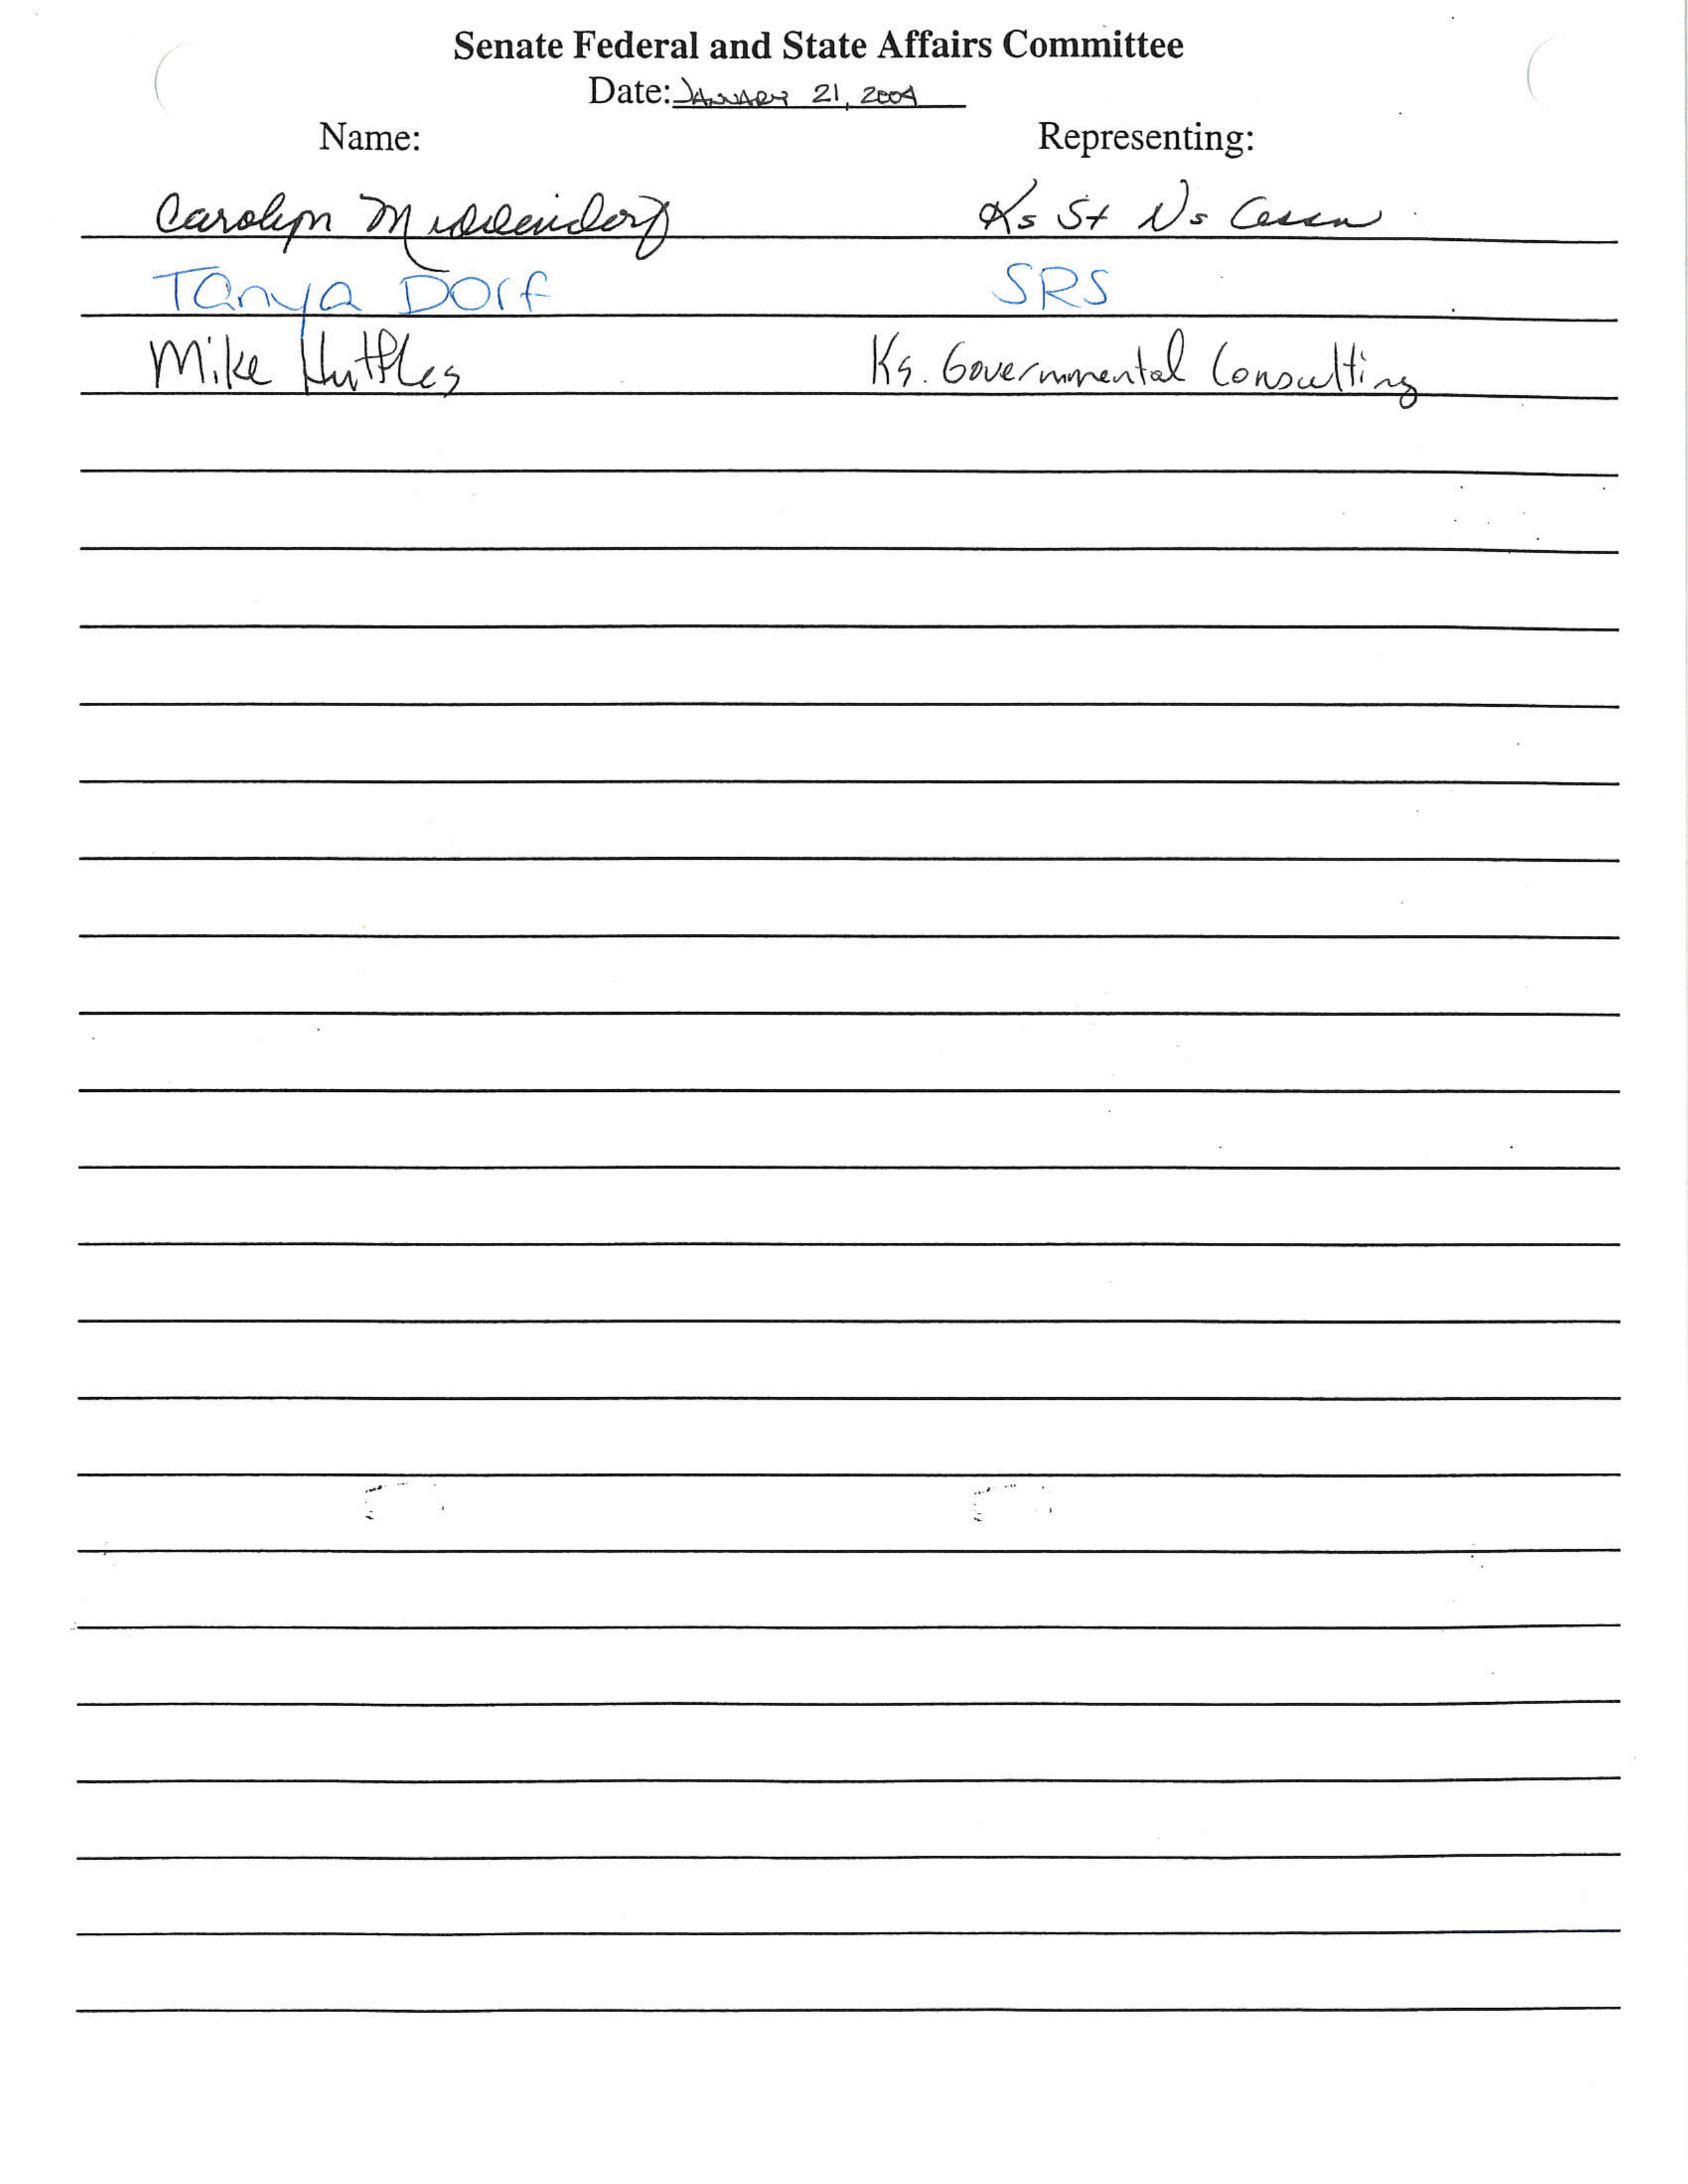 Senate Federal and State Affairs Committee
Date: JANUARY 21, 2009
Name: Representing:
Carolyn Middendorf Ks St Ns Assn
Tanya Dorf SRS
Mike Huttles Ks. Governmental Consulting